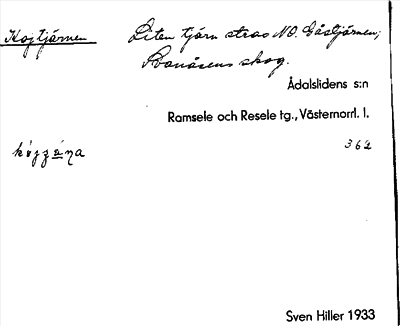 Kojtjärnen Liten tjärn strax NO. Gåstjärnen;
Svanåsens skog.
Ådalslidens s:n
Ramsele och Resele tg., Västernorrl. l.
362
Sven Hiller 1933